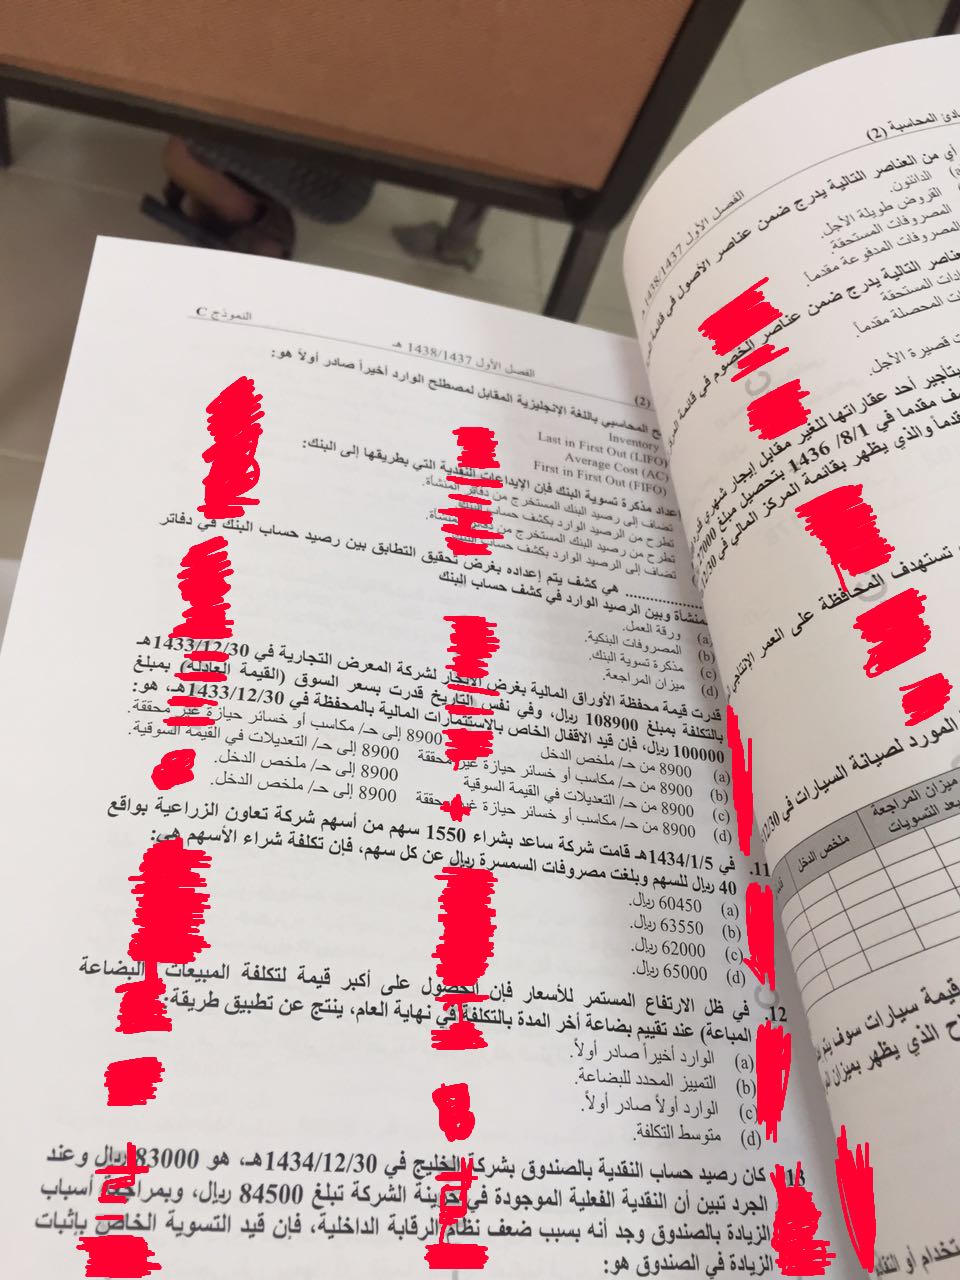 النموذج C
الفصل الأول 1438/1437 هـ
(2)
المحاسبي باللغة الإنجليزية المقابل لمصطلح الوارد أخيراً صادر أولاً هو:
Inventory
Last in First Out (LIFO)
Average Cost (AC)
First in First Out (FIFO)
إعداد مذكرة تسوية البنك فإن الإيداعات النقدية التي بطريقها إلى البنك:
تضاف إلى رصيد البنك المستخرج من دفاتر المنشأة.
تطرح من الرصيد الوارد بكشف حساب
تطرح من رصيد البنك المستخرج من
تضاف إلى الرصيد الوارد بكشف حساب
......... هي كشف يتم إعداده بغرض تحقيق التطابق بين رصيد حساب البنك في دفاتر
المنشأة وبين الرصيد الوارد في كشف حساب البنك
(a) ورقة العمل.
(b) المصروفات البنكية.
(c) مذكرة تسوية البنك.
(d) ميزان المراجعة.
قدرت قيمة محفظة الأوراق المالية بغرض الاتجار لشركة المعرض التجارية في 1433/12/30هـ
بالتكلفة بمبلغ 108900 ريال، وفي نفس التاريخ قدرت بسعر السوق (القيمة العادلة) بمبلغ
100000 ريال، فإن قيد الاقفال الخاص بالاستثمارات المالية بالمحفظة في 1433/12/30هـ، هو:
(a) 8900 من حـ/ ملخص الدخل 8900 إلى حـ/ مكاسب أو خسائر حيازة غير محققة.
(b) 8900 من حـ/ مكاسب أو خسائر حيازة غير محققة 8900 إلى حـ/ التعديلات في القيمة السوقية.
(c) 8900 من حـ/ التعديلات في القيمة السوقية 8900 إلى حـ/ ملخص الدخل.
(d) 8900 من حـ/ مكاسب أو خسائر حيازة غير محققة 8900 إلى حـ/ ملخص الدخل.
11. في 1434/1/5هـ قامت شركة ساعد بشراء 1550 سهم من أسهم شركة تعاون الزراعية بواقع
40 ريال للسهم وبلغت مصروفات السمسرة ريال عن كل سهم، فإن تكلفة شراء الأسهم هي:
(a) 60450 ريال.
(b) 63550 ريال.
(c) 62000 ريال.
(d) 65000 ريال.
12. في ظل الارتفاع المستمر للأسعار فإن الحصول على أكبر قيمة لتكلفة المبيعات البضاعة
المباعة) عند تقييم بضاعة أخر المدة بالتكلفة في نهاية العام، ينتج عن تطبيق طريقة:
(a) الوارد أخيراً صادر أولاً.
(b) التمييز المحدد للبضاعة.
(c) الوارد أولاً صادر أولاً.
(d) متوسط التكلفة.
13 كان رصيد حساب النقدية بالصندوق بشركة الخليج في 1434/12/30هـ، هو 83000 ريال وعند
الجرد تبين أن النقدية الفعلية الموجودة في خزينة الشركة تبلغ 84500 ريال، وبمراجعة أسباب
الزيادة بالصندوق وجد أنه بسبب ضعف نظام الرقابة الداخلية، فإن قيد التسوية الخاص بإثبات
الزيادة في الصندوق هو:
المحاسبة (2)
الفصل الأول 1438/1437
أي من العناصر التالية يدرج ضمن عناصر الأصول في
(a) الدائنون.
القروض طويلة الأجل.
المصروفات المستحقة
المصروفات المدفوعة مقدماً.
العناصر التالية يدرج ضمن عناصر الخصوم في قائمة
المستحقة
المحصلة مقدماً.
قصيرة الأجل.
بتأجير أحد عقاراتها للغير مقابل إيجار شهري
مقدما في 1/8/ 1436 بتحصيل مبلغ
والذي يظهر بقائمة المركز المالي في 12/30
تستهدف المحافظة على العمر الإنتاجي
المورد لصيانة السيارات في 12/30
ميزان المراجعة
بعد التسويات
ملخص الدخل
قيمة سيارات سوف
الذي يظهر بميزان